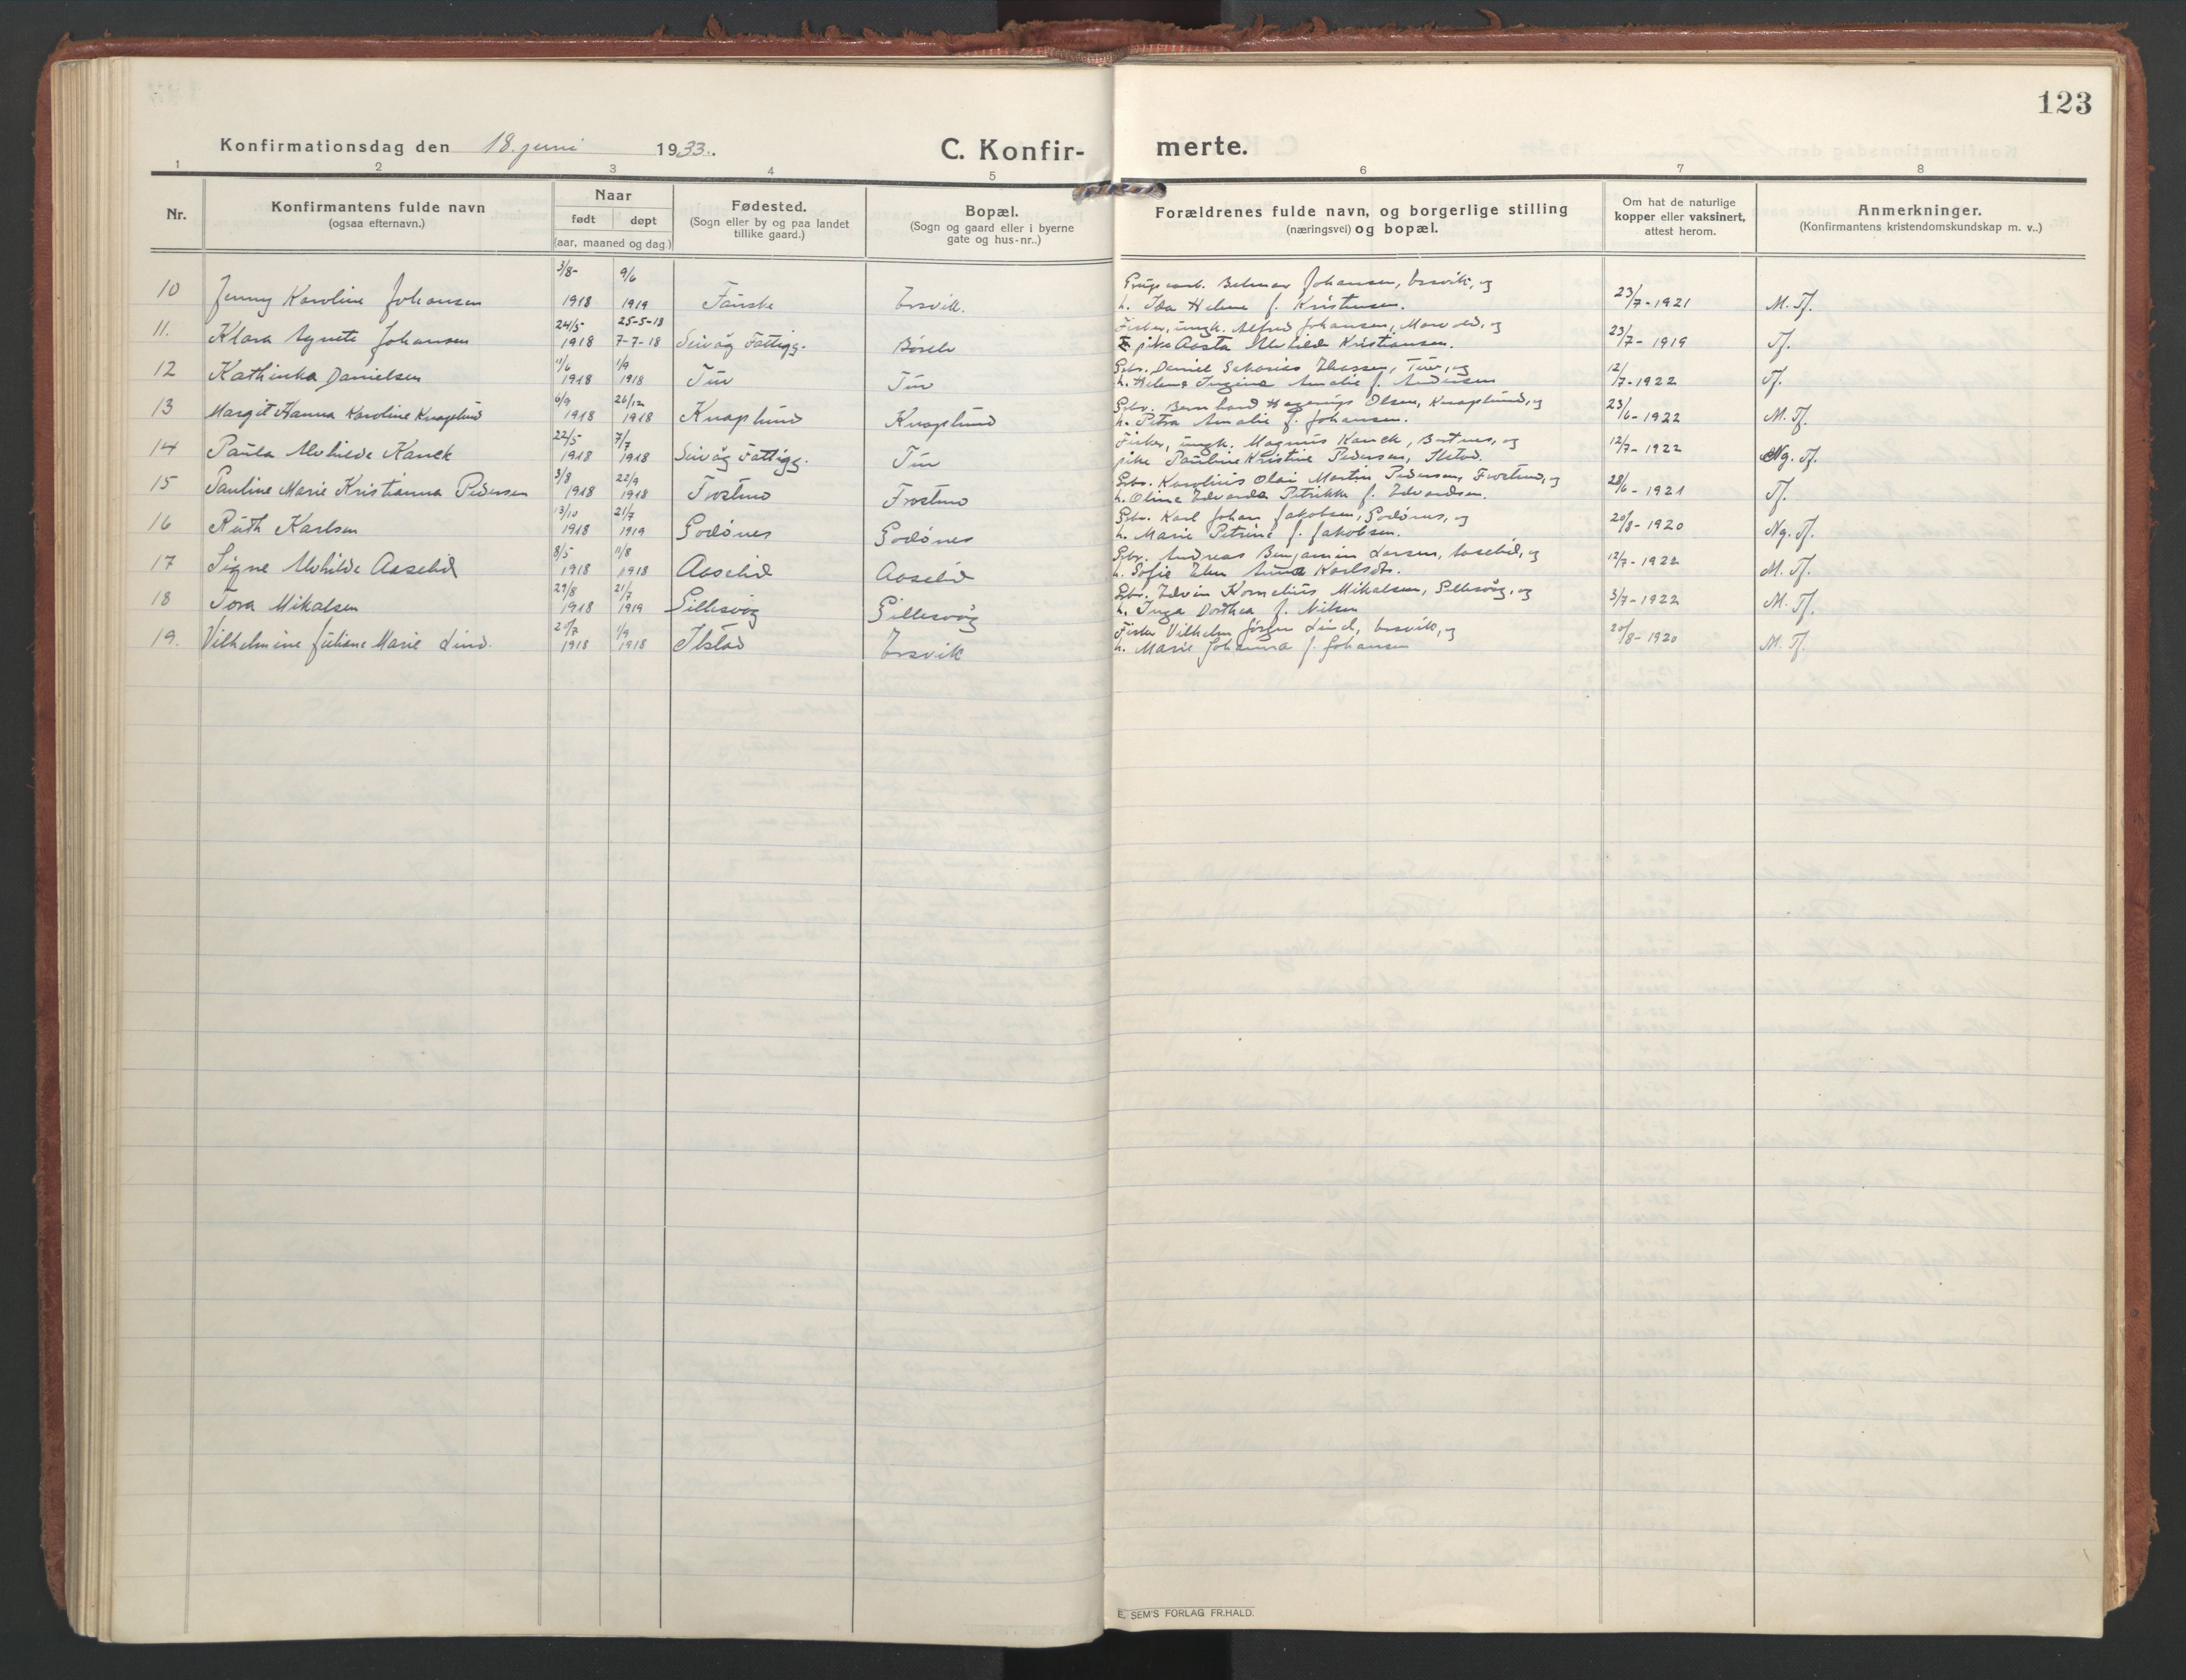 123
Konfirmationsdag den 18. juni 1933.
C. Konfir- merte.
1 2 3 4 5 6 7 8
Nr.
Konfirmantens fulde navn
(ogsaa efternavn.)
Naar
født døpt
(aar, maaned og dag.)
Fødested.
(Sogn eller by og paa landet
tillike gaard.)
Bopæl.
(Sogn og gaard eller i byerne
gate og hus-nr..)
Forældrenes fulde navn, og borgerlige stilling
(næringsvei) og bopæl.
Om hat de naturlige
kopper eller vaksinert,
attest herom.
Anmerkninger.
(Konfirmantens kristendomskundskap m. v..)
3/8- 9/6 Johansen,
10 Jenny Karoline Johansen 1918 1919 h. Ida Helene f. Kristensen. 23/7-1921 M. Tf.
24/5 25-5-18 Fisker, ungk. Alfred Johansen, og
11. Klara Agnete Johansen 1918 7-7-18 Seivåg Fattigg. pike Aasta Alvhilde Kristiansen. 23/7-1919 Tf.
11/6 1/9 Gbr. Daniel Sakarias og
12 Kathinka Danielsen 1918 1918 h. Helene Amalie f. Andersen 12/7-1922 Tf.
6/9 26/12 Gbr. Bernhard Olsen, Knaplund, og
13 Margit Hanna Karoline Knaplund 1918 1918 Knaplund Knaplund h. Petra Amalie f. Johansen. 23/6-1922 M. Tf.
22/5 7/7 Fisker, ungk. Magnus Kanck, og
14 Paula Alvhilde Kanck 1918 1918 Seivåg Fattigg. pike Pauline Kristine Pedersen, Ilstad. 12/7-1922 Ng. Tf.
3/8 22/9 Gbr. Karolius Olai Martin Pedersen, Frostmo, og
15 Pauline Marie Kristianna Pedersen 1918 1918 Frostmo Frostmo h. Oline Edvarda Petrikke f. Edvardsen. 28/6-1921 Tf.
13/10 21/7 Gbr. Karl Johan Jakobsen, Godönes, og
16 Ruth Karlsen 1918 1919 Godönes Godönes h. Marie Petrine f. Jakobsen. 20/8-1920 Ng. Tf.
8/5 11/8 Gbr. Andreas Benjamin Larsen, Aaselid, og
17 Signe Alvhilde Aaselid 1918 1918 Aaselid Aaselid h. Sofie Anna Karlsdtr. 12/7-1922 M. Tf.
29/8 21/7 Gbr. Edvin Kornelius Mikalsen, Gillesvåg, og
18 Tora Mikalsen 1918 1919 Gillesvåg Gillesvåg h. Inga Dorthea f. Nilsen 3/7-1922 M. Tf.
20/7 1/9 Fisker Vilhelm Jörgen Lind, og
19. Vilhelmine Juliane Marie Lind. 1918 1918 Ilstad h. Marie Johanna f. Johansen 20/8-1920 M. Tf.
E. SEM'S FORLAG FR.HALD.